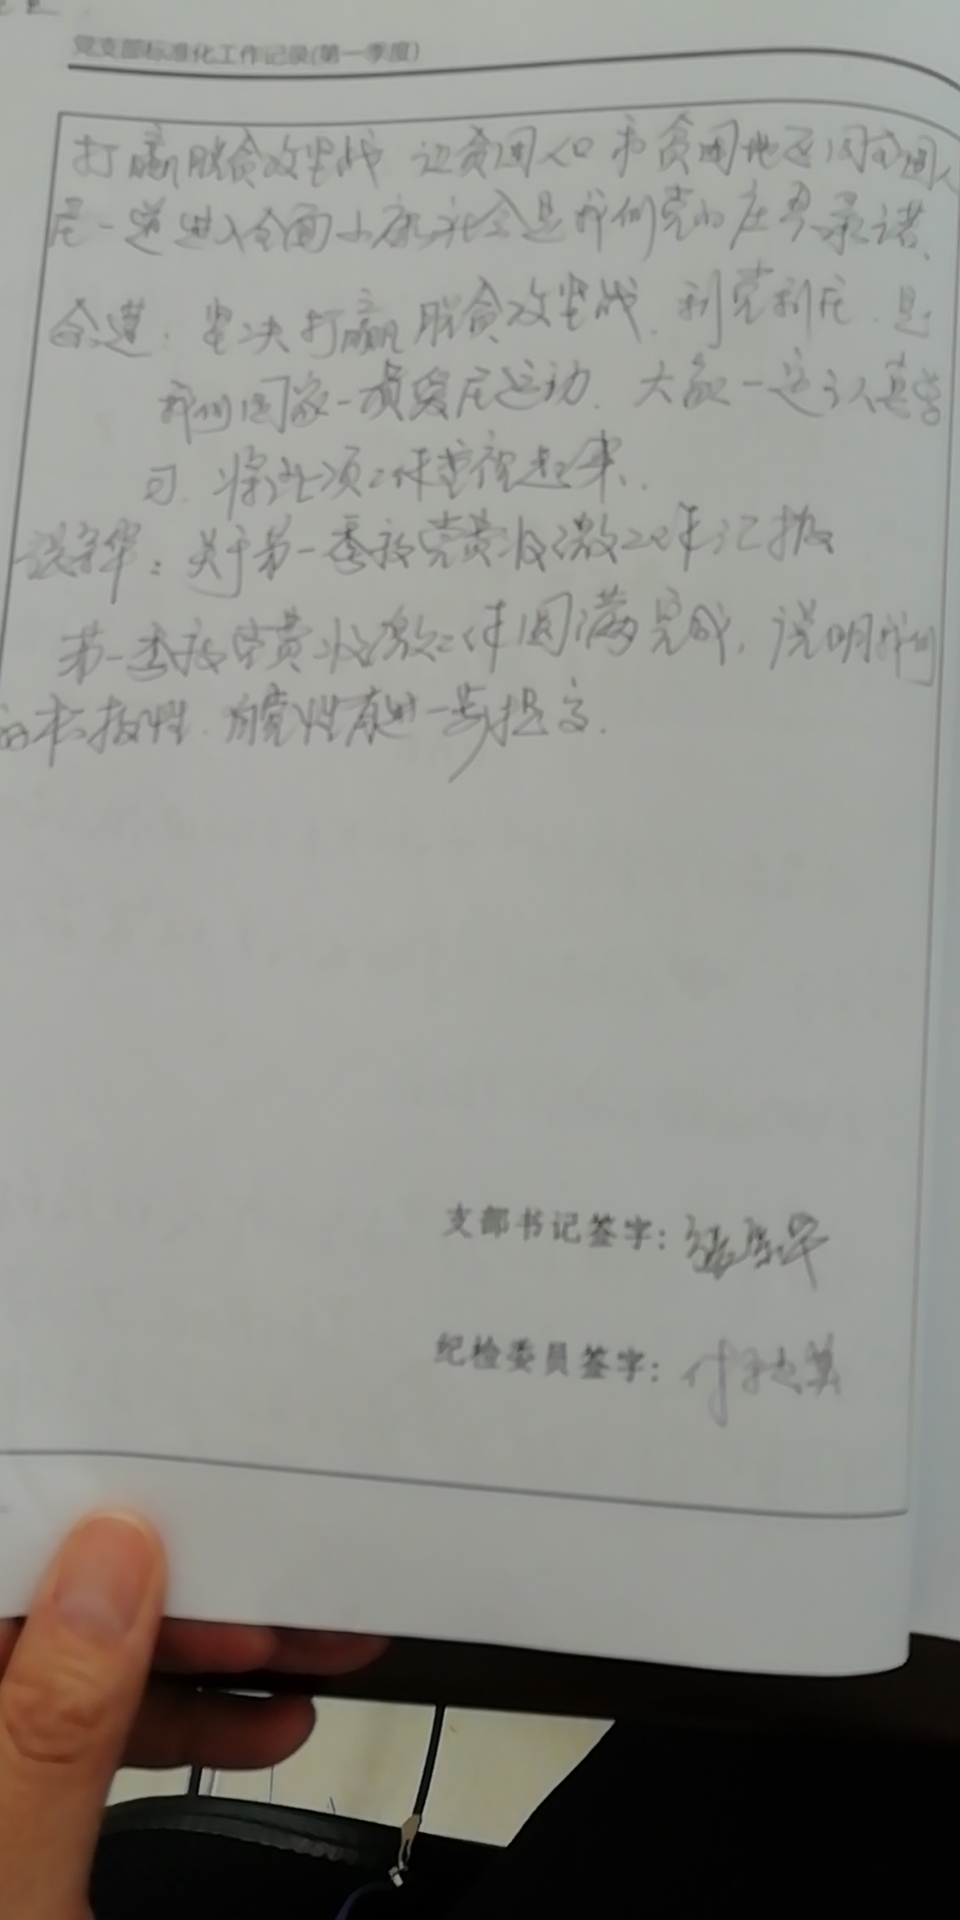 党支部标准化工作记录(第一季度)
打赢脱贫攻坚战 让贫困人口和贫困地区同全国人
民一道进入全面小康社会是我们党的庄严承诺、
坚决打赢脱贫攻坚战、利党利民、是
我们国家一项爱民运动、大家一定认真学
习、将此项工作重视起来、
关于第一季度党费收缴工作汇报
第一季度党费收缴工作圆满完成, 说明我们
的积极性、有进一步提高.
支部书记签字:
纪检委员签字: